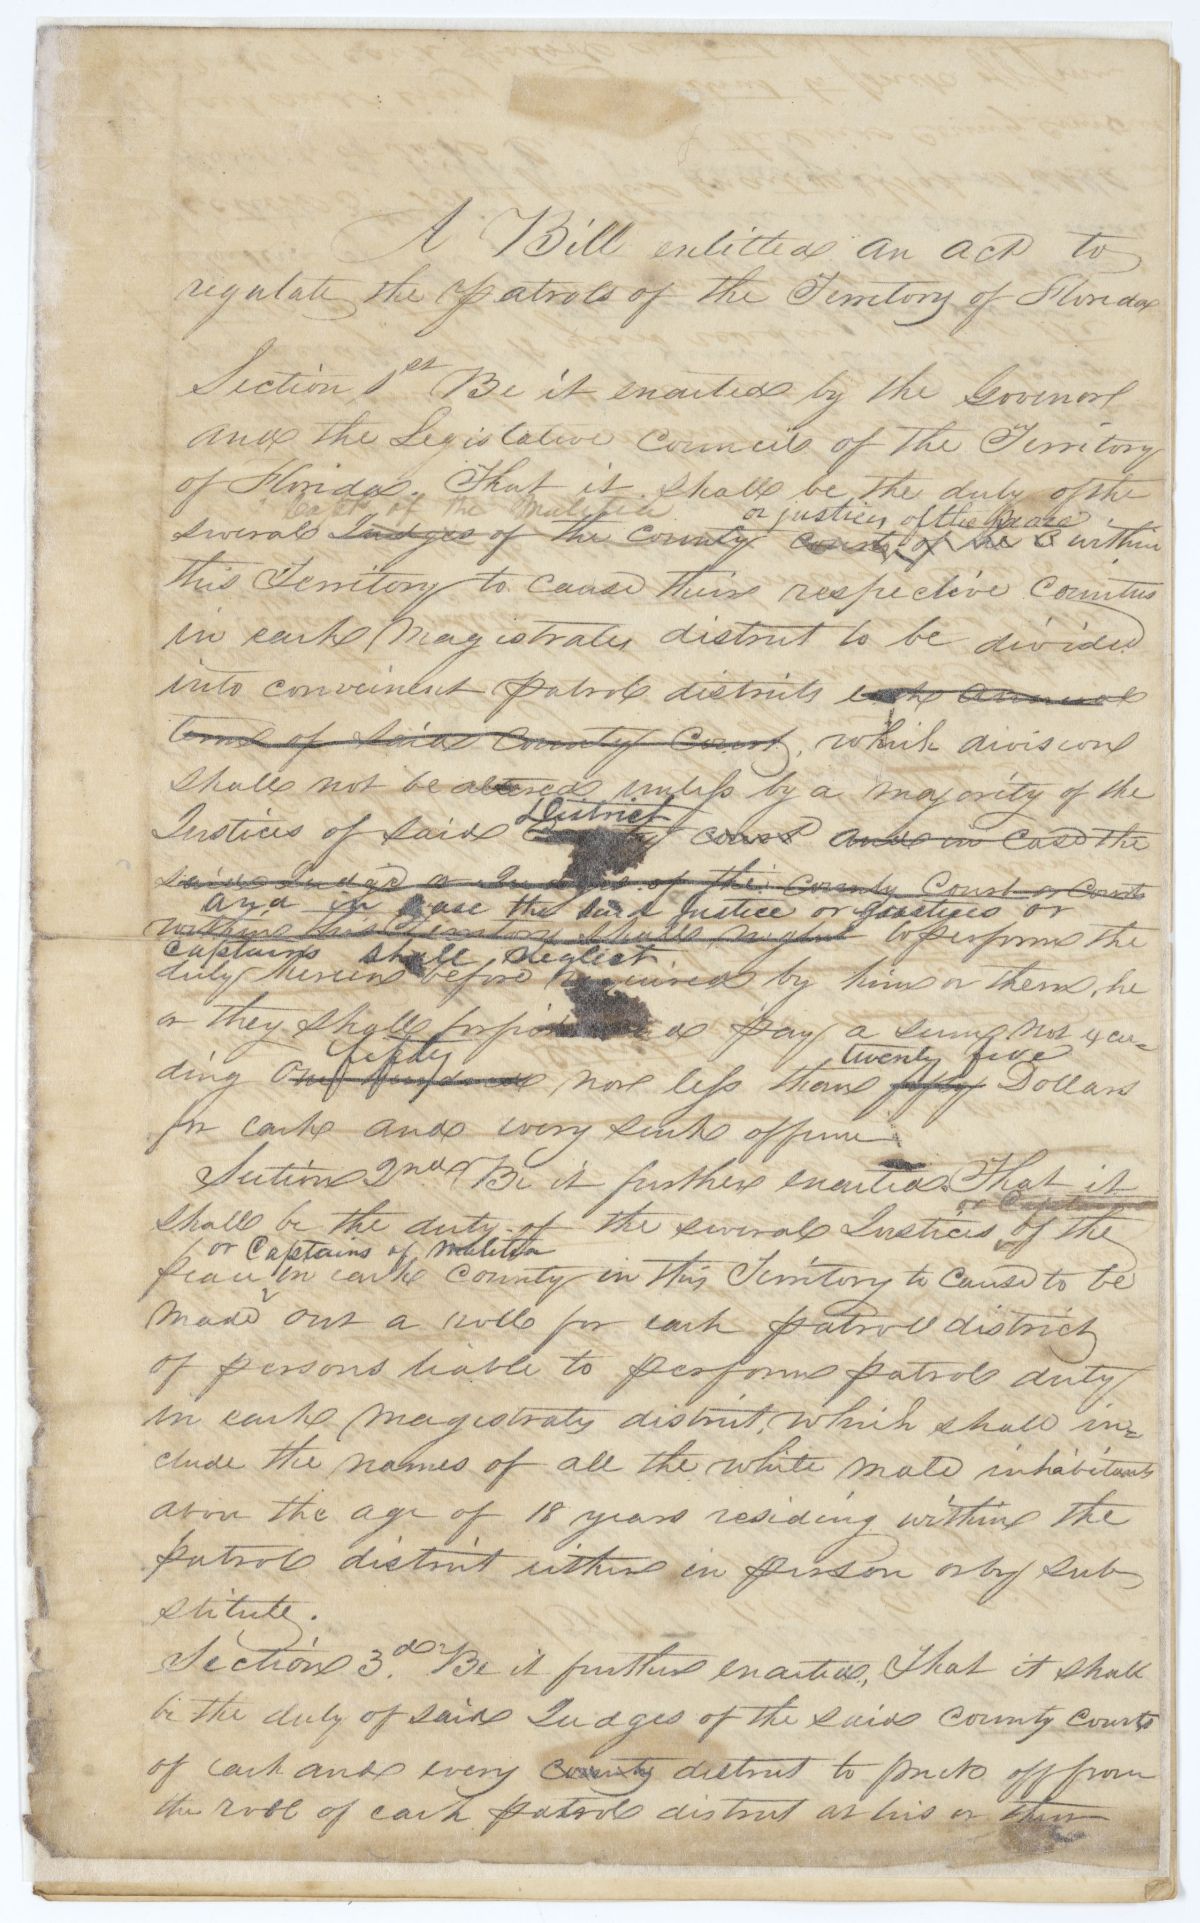 A Bill entitled an act to
regulate the patrols of the Territory of Florida
Section 1st Be it enacted by the Govenor
and the Legislative Council of the Territory
of Florida. That it shall be the duty of the
Capt of the Malitia or justices of the peace
several Judges of the County Courts of the C within
this Territory to cause their respective Counties
in each Magistrates district to be divided
into conveinent patrol districts each annual
term of said County Court, which division
shall not be altered unless by a majority of the
District
Justices of said County Court and in case the
said Judge or Judges of the County Court or Courts
and in case the said justice or justices or
within this Territory shall neglect to perform the
captains shall neglect
duty herein before required by him or them, he
or they shall forfeit and pay a sum not excee-
fifty twenty five
ding One hundred nor less than fifty Dollars
for each and every such offence
Section 2nd Be it further enacted. That it
or Captains
shall be the duty of the several Justices of the
or Captains of Malitia
peace in each County in this Territory to cause to be
made out a roll for each patroll district
of persons liable to perform patrol duty
in each magistrates district, which shall in=
clude the names of all the white male inhabitants
above the age of 18 years residing within the
patrol district either in person or by sub
stitute.
Section 3.d Be it further enacted, That it shall
be the duty of said Judges of the said County Courts
of each and every County district to prick off from
the roll of each patrol district at his or their